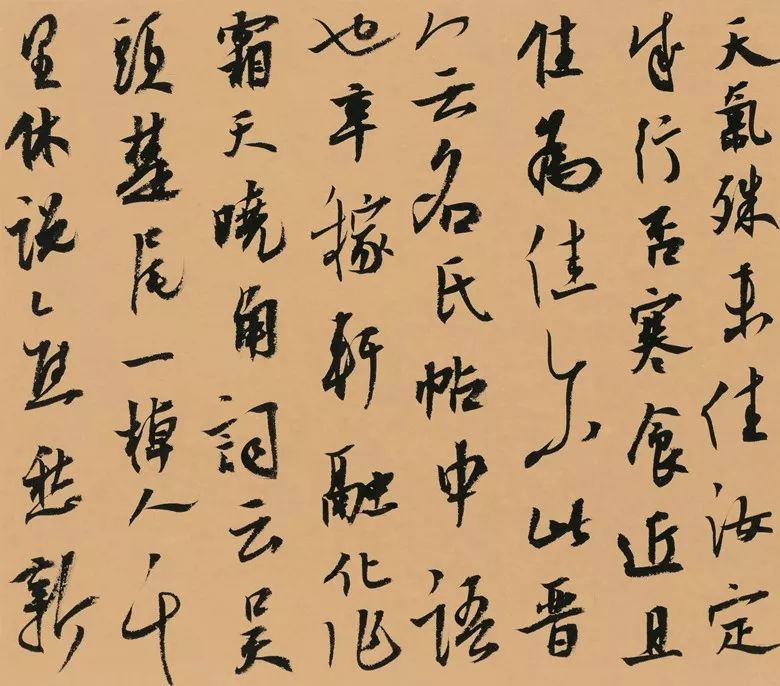 天氣殊未佳汝定
成行否寒食近且
住為佳尔此晋
人云名氏帖中語
也辛稼軒融化作
霜天曉角詞云吴
頭楚尾一棹人千
里休說舊愁新